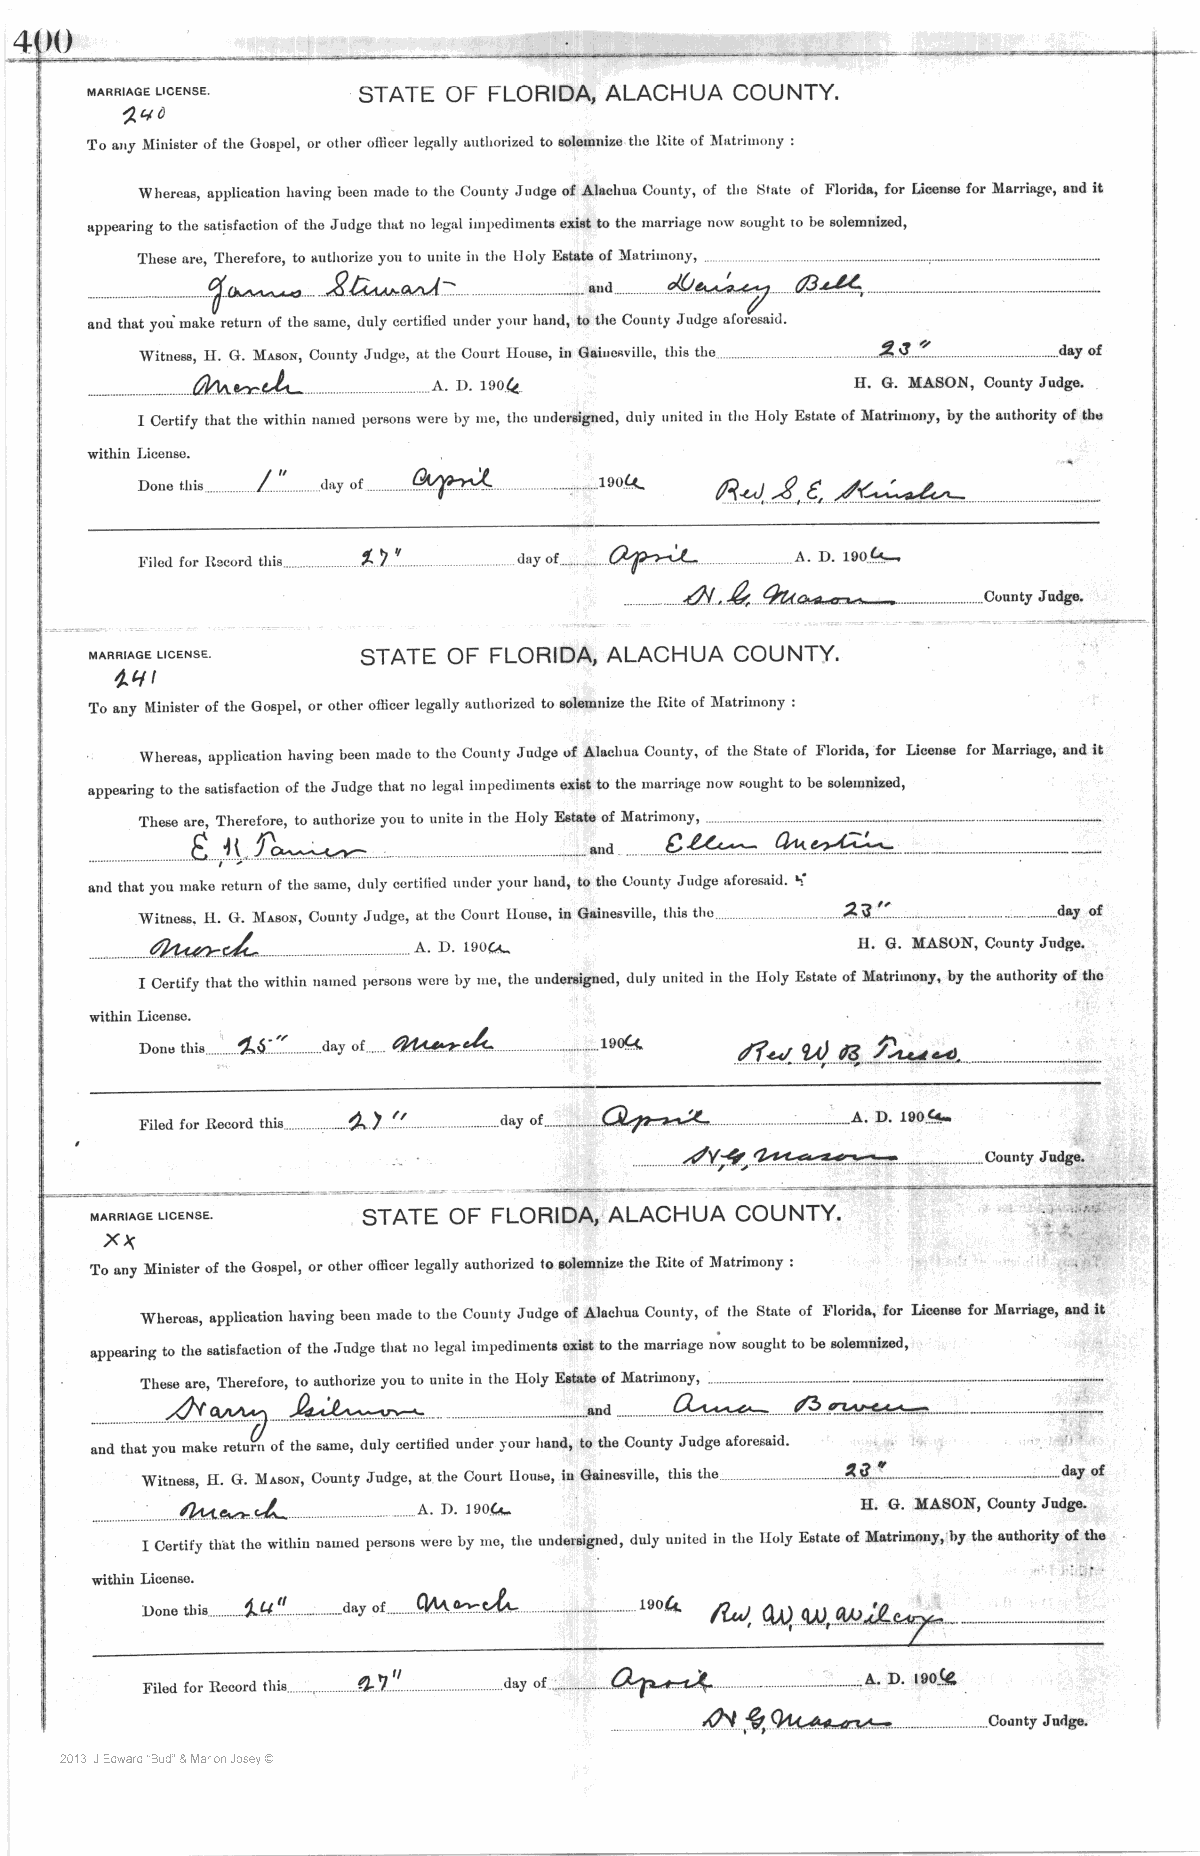 400
MARRIAGE LICENSE. STATE OF FLORIDA, ALACHUA COUNTY.
240
To any Minister of the Gospel, or other officer legally authorized to solemnize the Rite of Matrimony :
Whereas, application having been made to the County Judge of Alachua County, of the State of Florida, for License for Marriage, and it
appearing to the satisfaction of the Judge that no legal impediments exist to the marriage now sought to be solemnized,
These are, Therefore, to authorize you to unite in the Holy Estate of Matrimony,
James Stewart and Daisey Bell
and that you make return of the same, duly certified under your hand, to the County Judge aforesaid.
Witness, H. G. MASON, County Judge, at the Court House, in Gainesville, this the 23" day of
March A. D. 1906 H. G. MASON, County Judge.
I Certify that the within named persons were by me, the undersigned, duly united in the Holy Estate of Matrimony, by the authority of the
within License.
Done this 1" day of April 1906 Rev. S. E. Kinsler
Filed for Record this 27" day of April A. D. 1906
H. G. Mason County Judge.
MARRIAGE LICENSE. STATE OF FLORIDA, ALACHUA COUNTY.
241
To any Minister of the Gospel, or other officer legally authorized to solemnize the Rite of Matrimony :
Whereas, application having been made to the County Judge of Alachua County, of the State of Florida, for License for Marriage, and it
appearing to the satisfaction of the Judge that no legal impediments exist to the marriage now sought to be solemnized,
These are, Therefore, to authorize you to unite in the Holy Estate of Matrimony,
E. K. and Ellen
and that you make return of the same, duly certified under your hand, to the County Judge aforesaid.
Witness, H. G. MASON, County Judge, at the Court House, in Gainesville, this the 23" day of
March A. D. 1906 H. G. MASON, County Judge.
I Certify that the within named persons were by me, the undersigned, duly united in the Holy Estate of Matrimony, by the authority of the
within License.
Done this 25" day of March 1906 Rev. W. B.
Filed for Record this 27" day of April A. D. 1906
H. G. Mason County Judge.
MARRIAGE LICENSE. STATE OF FLORIDA, ALACHUA COUNTY.
XX
To any Minister of the Gospel, or other officer legally authorized to solemnize the Rite of Matrimony :
Whereas, application having been made to the County Judge of Alachua County, of the State of Florida, for License for Marriage, and it
appearing to the satisfaction of the Judge that no legal impediments exist to the marriage now sought to be solemnized,
These are, Therefore, to authorize you to unite in the Holy Estate of Matrimony,
Harry Gilmore and Anna Bowen
and that you make return of the same, duly certified under your hand, to the County Judge aforesaid.
Witness, H. G. MASON, County Judge, at the Court House, in Gainesville, this the 23" day of
March A. D. 1906 H. G. MASON, County Judge.
I Certify that the within named persons were by me, the undersigned, duly united in the Holy Estate of Matrimony, by the authority of the
within License.
Done this 24" day of March 1906 Rev. W. W. Wilcox
Filed for Record this 27" day of April A. D. 1906
H. G. Mason County Judge.
2013 J Edward "Bud" & Marion Josey ©